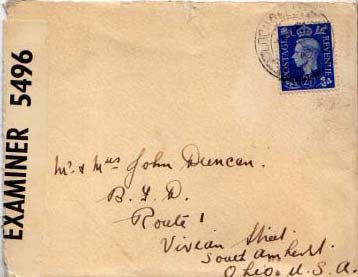 EXAMINER 5496
POSTAGE REVENUE
Mr & Mrs John Duncan.
Route 1
Vivian Street.
South Amherst.
Ohio. U. S. A.